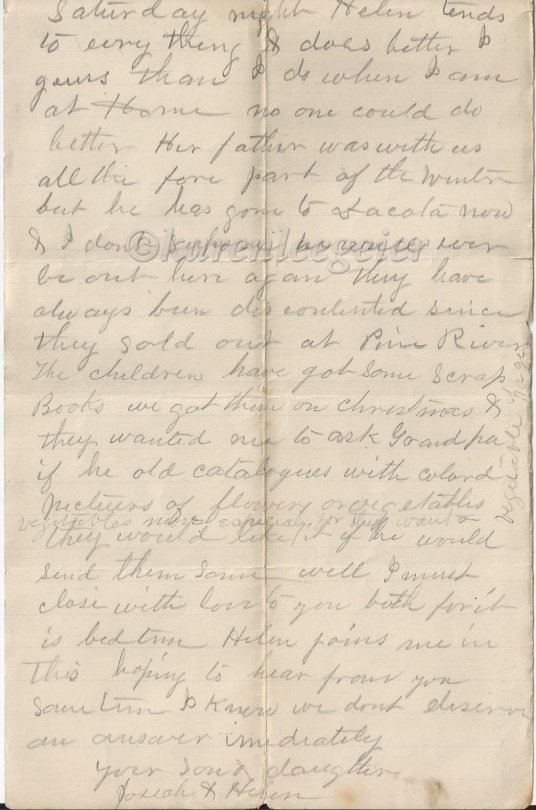 Saturday night Helen tends
to evry thing & does better I
guess than I do when I am
at Home no one could do
better Her father was with us
all the fore part of the winter
but he has gone to Dacota now
& I dont he will ever
be out here again they have
always been discontented since
they sold out at Pine River
The children have got some scrap
Books we got them on christmas &
they wanted me to ask Grandpa
if he old catalogues with colord
pictures of flowers or vegetables
vegetables more especialy for they want a
vegitable page
they would like it if he would
send them some well I must
close with love to you both for it
is bedtime Helen joins me in
this hoping to hear from you
some time I know we dont deserve
an answer imediately
your son & daughter
Josiah & Helen
©karenleegeier